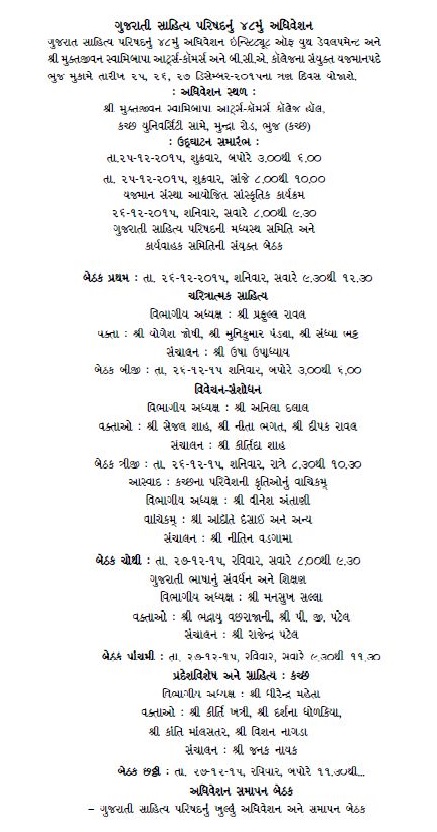 ગુજરાતી સાહિત્ય પરિષદનું ૪૮મું અધિવેશન
ગુજરાત સાહિત્ય પરિષદનું ૪૮મું અધિવેશન ઇન્સ્ટિટ્યૂટ ઑફ યુથ ડેવલપમેન્ટ અને
શ્રી મુક્તજીવન સ્વામિબાપા આર્ટ્સ-કૉમર્સ અને બી.સી.એ. કૉલેજના સંયુક્ત યજમાનપદે
ભુજ મુકામે તારીખ ૨૫, ૨૬, ૨૭ ડિસેમ્બર-૨૦૧૫ના ત્રણ દિવસ યોજાશે.
: અધિવેશન સ્થળ :
શ્રી મુક્તજીવન સ્વામિબાપા આર્ટ્સ-કૉમર્સ કૉલેજ હૉલ,
કચ્છ યુનિવર્સિટી સામે, મુન્દ્રા રોડ, ભુજ (કચ્છ)
: ઉદ્ઘાટન સમારંભ :
તા.૨૫-૧૨-૨૦૧૫, શુક્રવાર, બપોરે ૩.૦૦થી ૬.૦૦
તા. ૨૫-૧૨-૨૦૧૫, શુક્રવાર, સાંજે ૮.૦૦થી ૧૦.૦૦
યજમાન સંસ્થા આયોજિત સાંસ્કૃતિક કાર્યક્રમ
૨૬-૧૨-૨૦૧૫, શનિવાર, સવારે ૮.૦૦થી ૯.૩૦
ગુજરાતી સાહિત્ય પરિષદની મધ્યસ્થ સમિતિ અને
કાર્યવાહક સમિતિની સંયુક્ત બેઠક
બેઠક પ્રથમ : તા. ૨૬-૧૨-૨૦૧૫, શનિવાર, સવારે ૯.૩૦થી ૧૨.૩૦
ચરિત્રાત્મક સાહિત્ય
વિભાગીય અધ્યક્ષ : શ્રી પ્રફુલ્લ રાવલ
વક્તા : શ્રી યોગેશ જોષી, શ્રી મુનિકુમાર પંડ્યા, શ્રી સંધ્યા ભટ્ટ
સંચાલન : શ્રી ઉષા ઉપાધ્યાય
બેઠક બીજી : તા. ૨૬-૧૨-૧૫ શનિવાર, બપોરે ૩.૦૦થી ૬.૦૦
વિવેચન-સંશોધન
વિભાગીય અધ્યક્ષ : શ્રી અનિલા દલાલ
વક્તાઓ : શ્રી સેજલ શાહ, શ્રી નીતા ભગત, શ્રી દીપક રાવલ
સંચાલન : શ્રી કીર્તિદા શાહ
બેઠક ત્રીજી : તા. ૨૬-૧૨-૧૫, શનિવાર, રાત્રે ૮.૩૦થી ૧૦.૩૦
આસ્વાદ : કચ્છના પરિવેશની કૃતિઓનું વાચિકમ્
વિભાગીય અધ્યક્ષ : શ્રી વીનેશ અંતાણી
વાચિકમ્ : શ્રી અદિતિ દેસાઈ અને અન્ય
સંચાલન : શ્રી નીતિન વડગામા
બેઠક ચોથી : તા. ૨૭-૧૨-૧૫, રવિવાર, સવારે ૮.૦૦થી ૯.૩૦
ગુજરાતી ભાષાનું સંવર્ધન અને શિક્ષણ
વિભાગીય અધ્યક્ષ : શ્રી મનસુખ સલ્લા
વક્તાઓ : શ્રી ભદ્રાયુ વછરાજાની, શ્રી પી. જી. પટેલ
સંચાલન : શ્રી રાજેન્દ્ર પટેલ
બેઠક પાંચમી : તા. ૨૭-૧૨-૧૫, રવિવાર, સવારે ૯.૩૦થી ૧૧.૩૦
પ્રદેશવિશેષ અને સાહિત્ય : કચ્છ
વિભાગીય અધ્યક્ષ : શ્રી ધીરેન્દ્ર મહેતા
વક્તાઓ : શ્રી કીર્તિ ખત્રી, શ્રી દર્શના ધોળકિયા,
શ્રી કાંતિ માલસતર, શ્રી વિશન નાગડા
સંચાલન : શ્રી જનક નાયક
બેઠક છઠ્ઠી : તા. ૨૭-૧૨-૧૫, રવિવાર, બપોરે ૧૧.૩૦થી...
અધિવેશન સમાપન બેઠક
– ગુજરાતી સાહિત્ય પરિષદનું ખુલ્લું અધિવેશન અને સમાપન બેઠક